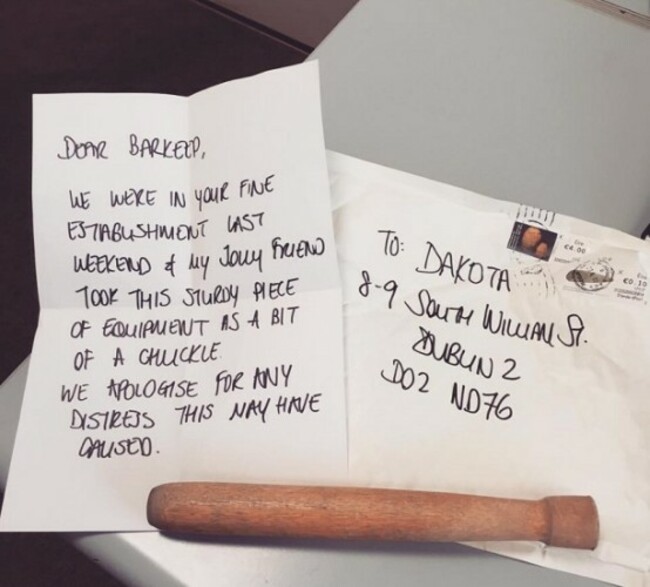 DEAR BARKEEP,
WE WERE IN YOUR FINE
ESTABLISHMENT LAST
WEEKEND & MY JOLLY FRIEND
TOOK THIS STURDY PIECE
OF EQUIPMENT AS A BIT
OF A CHUCKLE.
WE APOLOGISE FOR ANY
DISTRESS THIS MAY HAVE
CAUSED.
TO: DAKOTA
8-9 SOUTH WILLIAM ST.
DUBLIN 2
D02 ND76
€4.00
€0.10